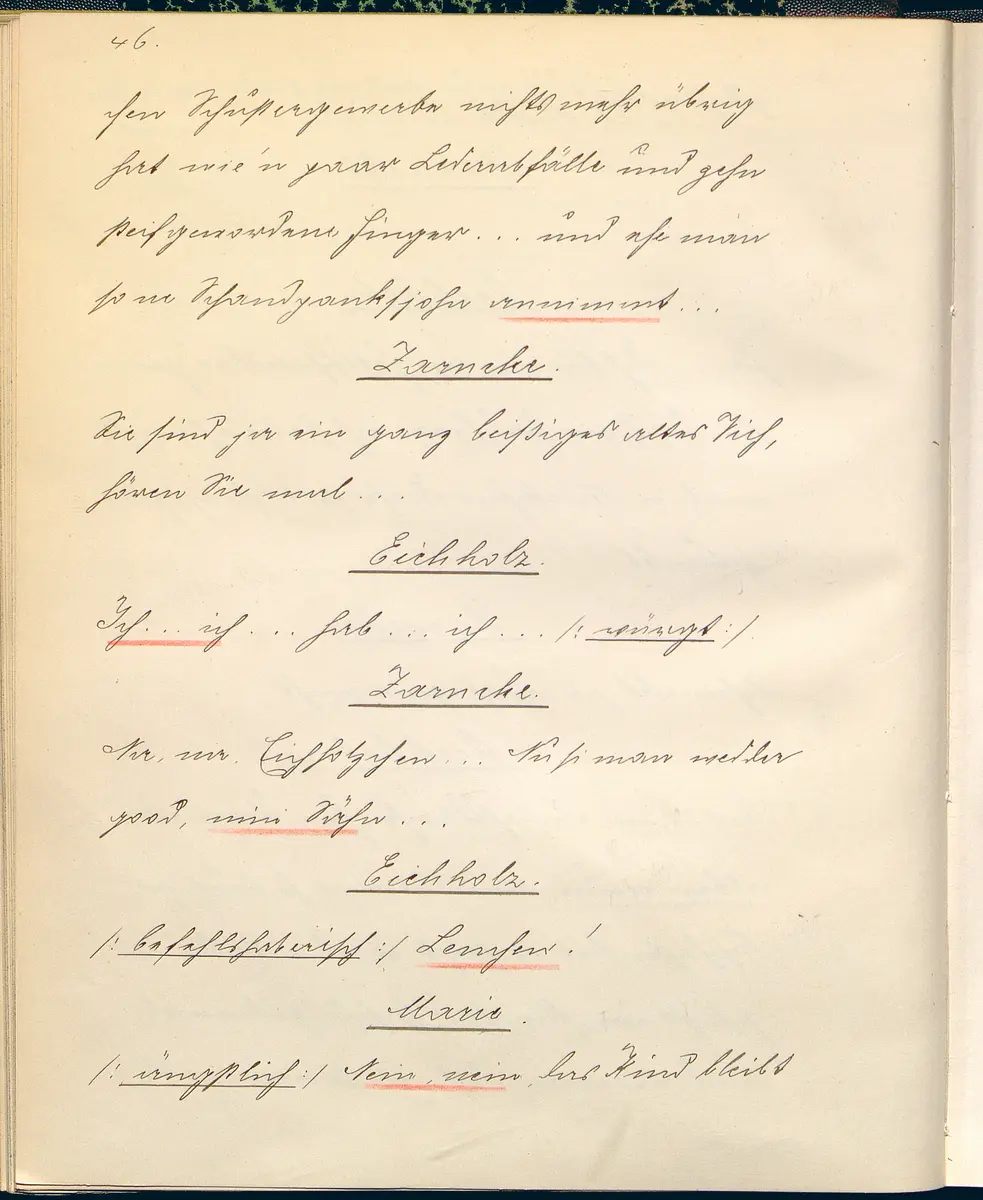 46.
hen Schustergewerbe nichts mehr übrig
hat wie'n paar Lederabfälle und zehn
steifgewordene Finger... und ehe man
so ne Schandpanksjohn annimmt...
Zarncke.
Sie sind ja ein ganz beißiges altes Vieh,
hören Sie mal...
Eichholz.
Ich... ich... hab... ich... /: würgt :/.
Zarncke.
Na, na. Eichholzchen... Nu si man wedder
good, min Söhn...
Eichholz.
/: befehlshaberisch :/ Lenchen!
Marie.
/: ängstlich :/ Nein, nein, das Kind bleibt